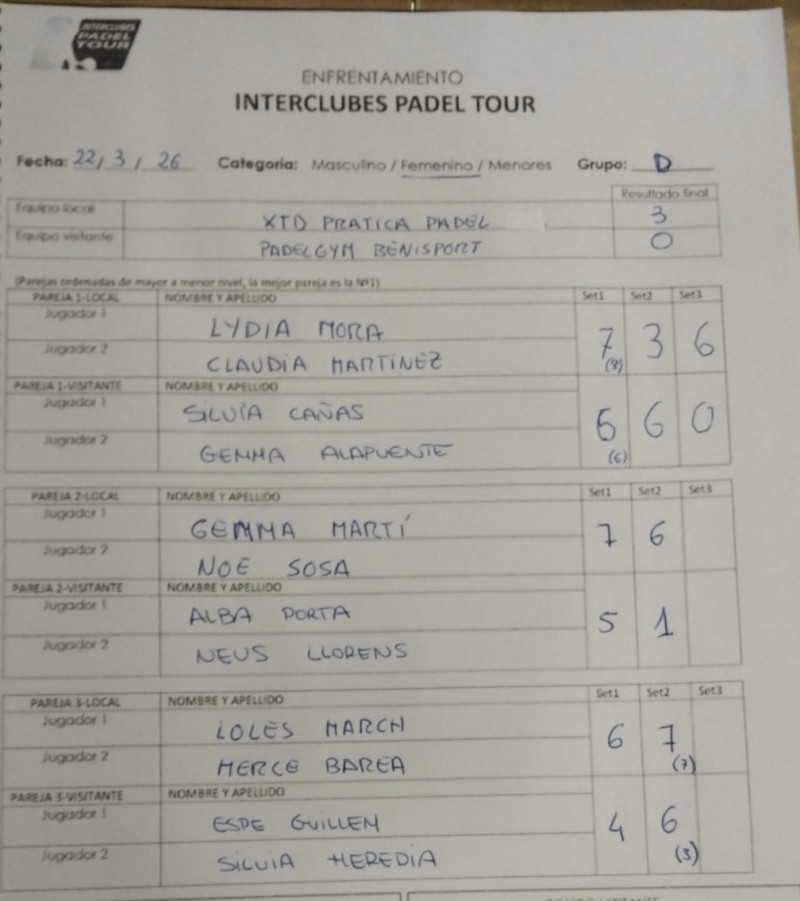 INTERCLUBES
PADEL
TOUR
ENFRENTAMIENTO
INTERCLUBES PADEL TOUR
Fecha: 22/ 3 / 26 Categoría: Masculino / Femenino / Menores Grupo: D
Resultado final
Equipo local XTD PRATICA PADEL 3
Equipo visitante PADELGYM BENISPORT 0
(Parejas ordenadas de mayor a menor nivel, la mejor pareja es la Nº1)
PAREJA 1-LOCAL NOMBRE Y APELLIDO Set1 Set2 Set3
Jugador 1 LYDIA MORA
7 3 6
Jugador 2 CLAUDIA MARTÍNEZ (8)
PAREJA 1-VISITANTE NOMBRE Y APELLIDO
Jugador 1 SILVIA CAÑAS
6 6 0
Jugador 2 GEMMA ALAPUENTE (6)
PAREJA 2-LOCAL NOMBRE Y APELLIDO Set1 Set2 Set3
Jugador 1 GEMMA MARTÍ
7 6
Jugador 2 NOE SOSA
PAREJA 2-VISITANTE NOMBRE Y APELLIDO
Jugador 1 ALBA PORTA
5 1
Jugador 2 NEUS LLORENS
PAREJA 3-LOCAL NOMBRE Y APELLIDO Set1 Set2 Set3
Jugador 1 LOLES MARCH
6 7
Jugador 2 MERCE BAREA (7)
PAREJA 3-VISITANTE NOMBRE Y APELLIDO
Jugador 1 ESPE GUILLEM
4 6
Jugador 2 SILVIA HEREDIA (3)